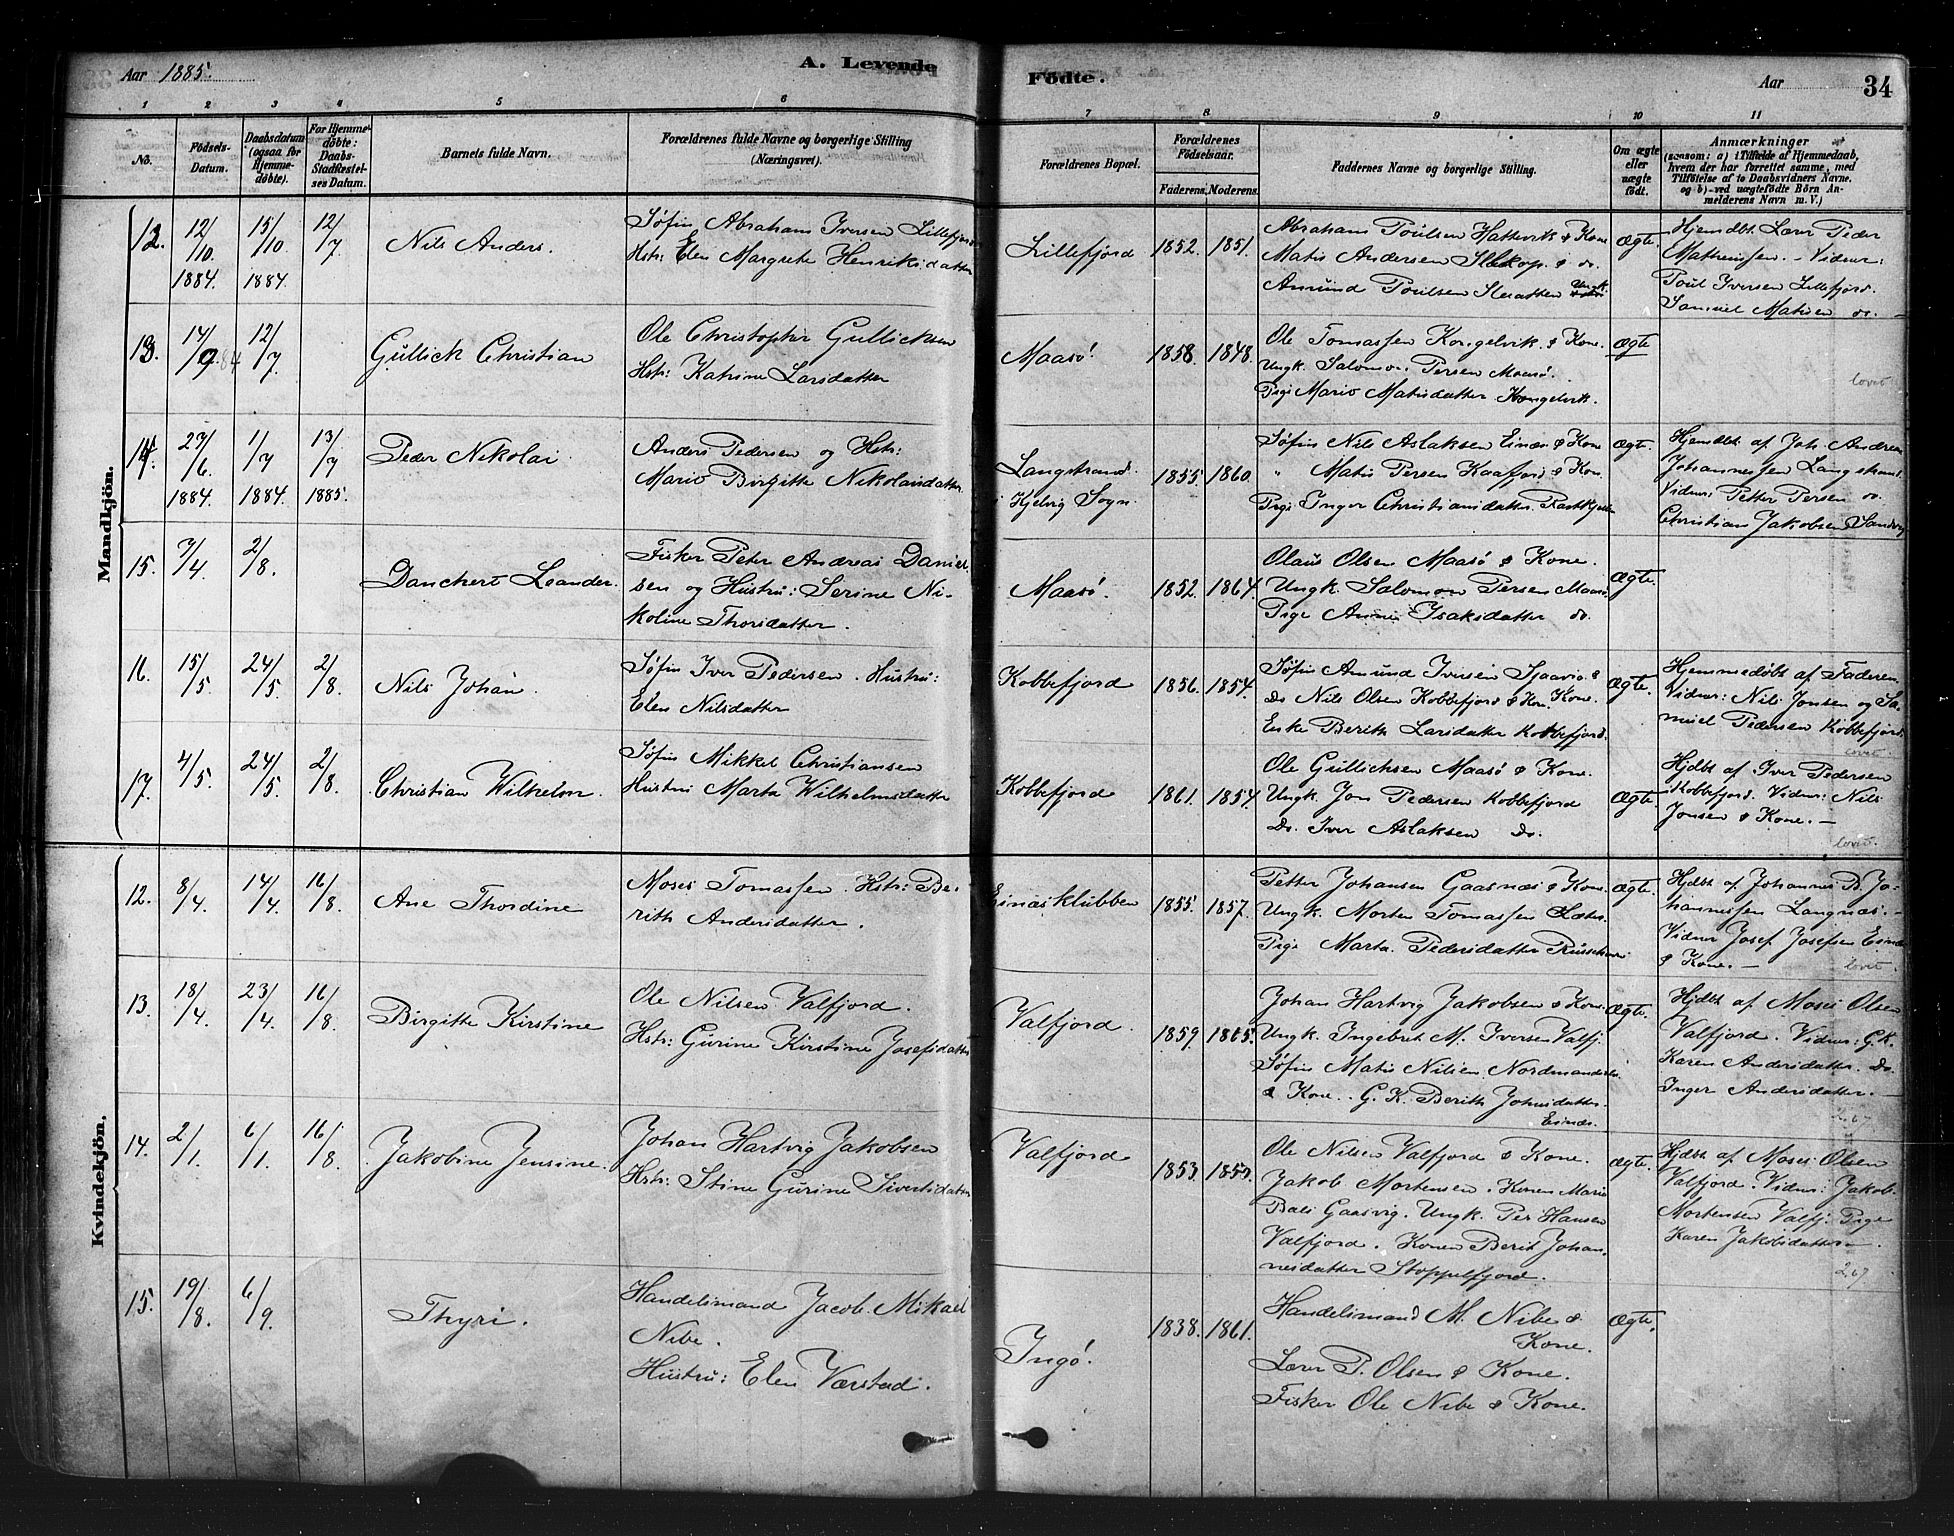 Aar 1885.
A. Levende
Födte.
Aar
34
1 2 3 4 5 6 7 8 9 10 11
No.
Födsels-
Datum.
Daabsdatum
(ogsaa for
Hjemme-
döbte).
For Hjemme-
döbte:
Daabs-
Stadfæstel-
ses Datum.
Barnets fulde Navn.
Forældrenes fulde Navne og borgerlige Stilling
(Næringsvei).
Forældrenes Bopæl.
Forældrenes
Födselsaar.
Faderens. Moderens.
Faddernes Navne og borgerlige Stilling.
Om ægte
eller
uægte
födt.
Anmærkninger
(saasom: a) i Tilfælde af Hjemmedaab,
hvem der har forrettet samme, med
Tilföielse af to Daabsvidners Navne.
og b) ved uægtefödte Börn An-
melderens Navn m. V.)
Mandkjön.
12.
12/10
1884
15/10
1884
12/7
Nils Anders.
Søfin Abrahams Iversen Lillefjord
Hstr: Elen Margrete Henriksdatter
Lillefjord
1852. 1851.
Abrahams Poulsen Hattevik & Kone
Matis Andersen Slekop. & do.
Amund Poulsen Slaatten Ungk.
Ægte.
Hjemdbt. Lærer Peder
Mathensen. - Vidner:
Poul Iversen Lillefjord.
Samuel Matisen do. -
13.
14/9 84
12/7
Gullick Christian
Ole Christopher Gullicksen
Hstr: Katrine Larsdatter
Maasø.
1858. 1848.
Ole Tomassen Kongelvik. & Kone.
Ungk. Salomon Persen Maasø.
Pige Marie Matisdatter Kongelvik.
Ægte
lovet
14.
27/6
1884
1/7
1884
13/7
1885.
Peder Nikolai
Anders Pedersen og Hstr:
Marie Birgitte Nikolaisdatter
Langstrand.
i Kjelvig Sogn.
1855. 1860.
Søfin Nils Aslaksen Einæs & Kone
" Matis Persen Kaafjord & Kone
Pige Inger Christiansdatter
Ægte.
Hjemdbt. af Joh. Andreas
Johannessen Langstrand.
Vidner: Petter Persen do.
Christian Jakobsen Sandvig
15.
7/4.
2/8.
Danchert Leander.
Fisker Peter Andreas Daniel-
sen og Hustru: Serine Ni-
koline Thorsdatter.
Maasø.
1852. 1864.
Olaus Olsen Maasø & Kone.
Ungk. Salomon Persen Maasø
Pige Anne Isaksdatter do.
Ægte.
16.
15/5
24/5
2/8.
Nils Johan.
Søfin Iver Pedersen. Hustru:
Elen Nilsdatter
Kobbefjord
1856. 1854.
Søfin Amund Iversen Sjaavig &
Do Nils Olsen Kobbefjord & Kone.
Enke Berith Larsdatter Kobbefjord.
Ægte.
Hjemmedøbt af Faderen.
Vidner: Nils Jonsen og Sa-
muel Pedersen Kobbefjord.
lovet.
17.
4/5
24/5.
2/8.
Christian Wilhelm.
Søfin Mikkel Christiansen
Hustru Marta Wilhelmsdatter
Kobbefjord
1861. 1854.
Ole Gullichsen Maasø & Kone.
Ungk. Jon Pedersen Kobbefjord
Do. Iver Aslaksen Do.
Ægte.
Hjdbt af Iver Pedersen
Kobbefjord. Vidner: Nils
Jonsen & Kone. -
lovet.
Kvindekjön.
12.
8/4.
14/4.
16/8.
Ane Thordine
Moses Tomassen. Hstr: Be-
rith Andersdatter.
Einæsklubben
1855. 1857.
Petter Johansen Gaasnæs & Kone.
Ungk. Morten Tomassen
Pige Marta Pedersdatter
Ægte.
Hjdbt af Johannes B. Jo-
hannessen Langnæs. -
Vidner Josef Josefsen Einæs
& Kone. -
lovet.
13.
18/4.
23/4.
16/8.
Birgitte Kirstine
Ole Nilsen Valfjord.
Hstr: Gurine Kirstine Josefsdatter
Valfjord.
1859. 1865.
Johan Hartvig Jakobsen & Kone
Ungk. Ingebret M. Iversen Valfj.
Søfin Matis Nilsen. Nordmandset
& Kone. G. K. Berith Johnsdatter.
Einæs.
Ægte.
Hjdbt af Moses Olsen
Valfjord. Vidner: G. K.
Karen Andersdatter. Do
Inger Andersdatter. -
2,67
14.
2/1.
6/1.
16/8.
Jakobine Jensine.
Johan Hartvig Jakobsen
Hstr: Stine Gurine Sivertsdatter
Valfjord
1853. 1853.
Ole Nilsen Valfjord & Kone.
Jakob Mortensen. Konen Marie
Bals Gaasvig. Ungk. Per Hansen
Valfjord. Konen Berit Johan-
nesdatter Stoppelfjord.
Ægte.
Hjdbt af Moses Olsen
Valfjord. Vidner: Jakob
Mortensen Valfj. Pige
Karen Jakobsdatter -
2,67
15.
19/8.
6/9.
Thyri.
Handelsmand Jacob Mikael
Nibe.
Hustru: Elen Værstad.
Ingø.
1838. 1861.
Handelsmand M. Nibe &
Kone.
Lærer P. Olsen & Kone.
Fisker Ole Nibe & Kone.
Ægte.